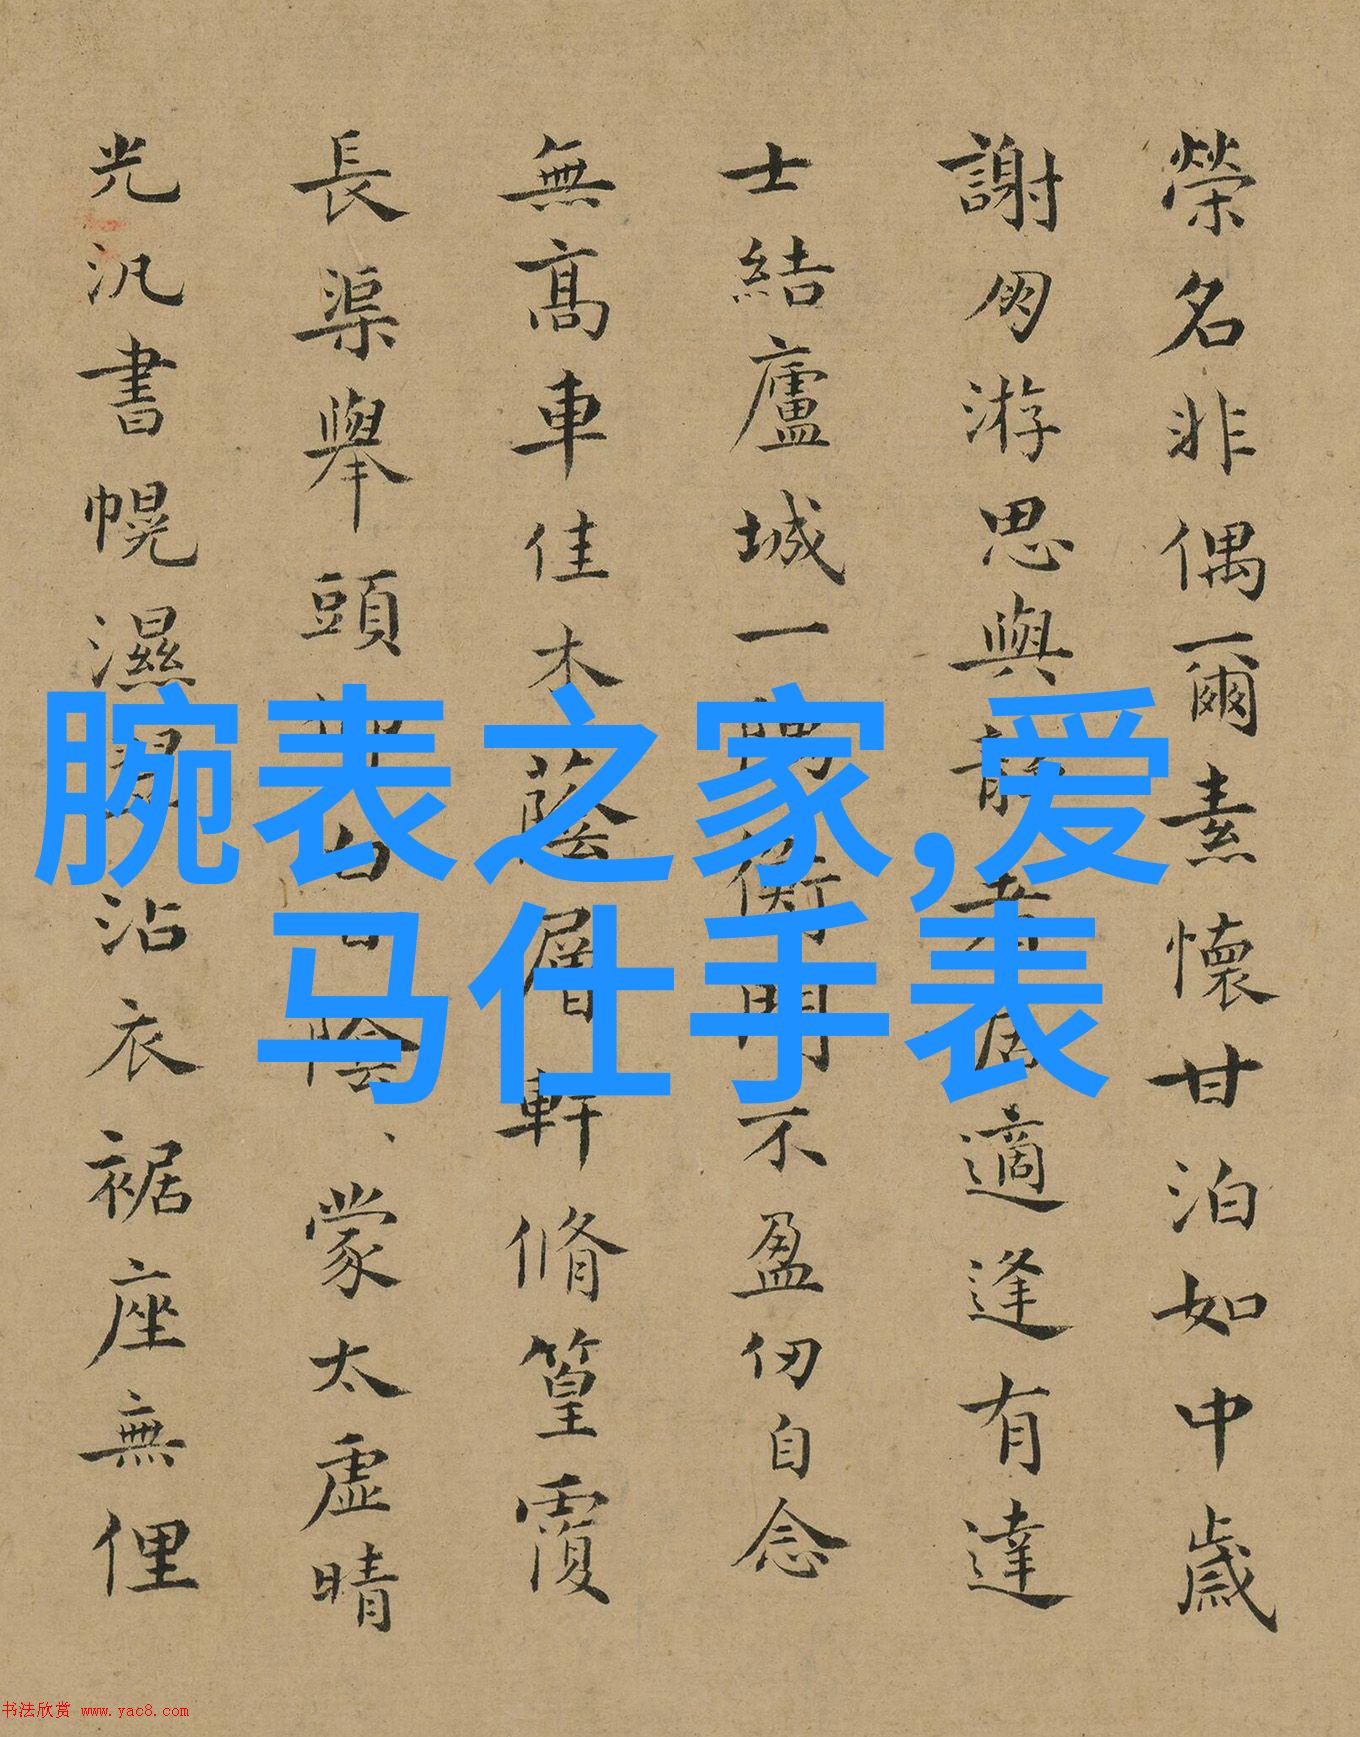 榮名非偶爾素懷甘泊如中歲
謝朋游思與靜者居適逢有達
士結廬城一隅衡門不盈仞自念
無高車佳木蔭層軒脩篁覆
長渠舉頭陰蒙太虛晴
光汎書幌濕翠沾衣裾座無俚
腕表之家,爱
马仕手表
书法欣赏 www.yac8.com